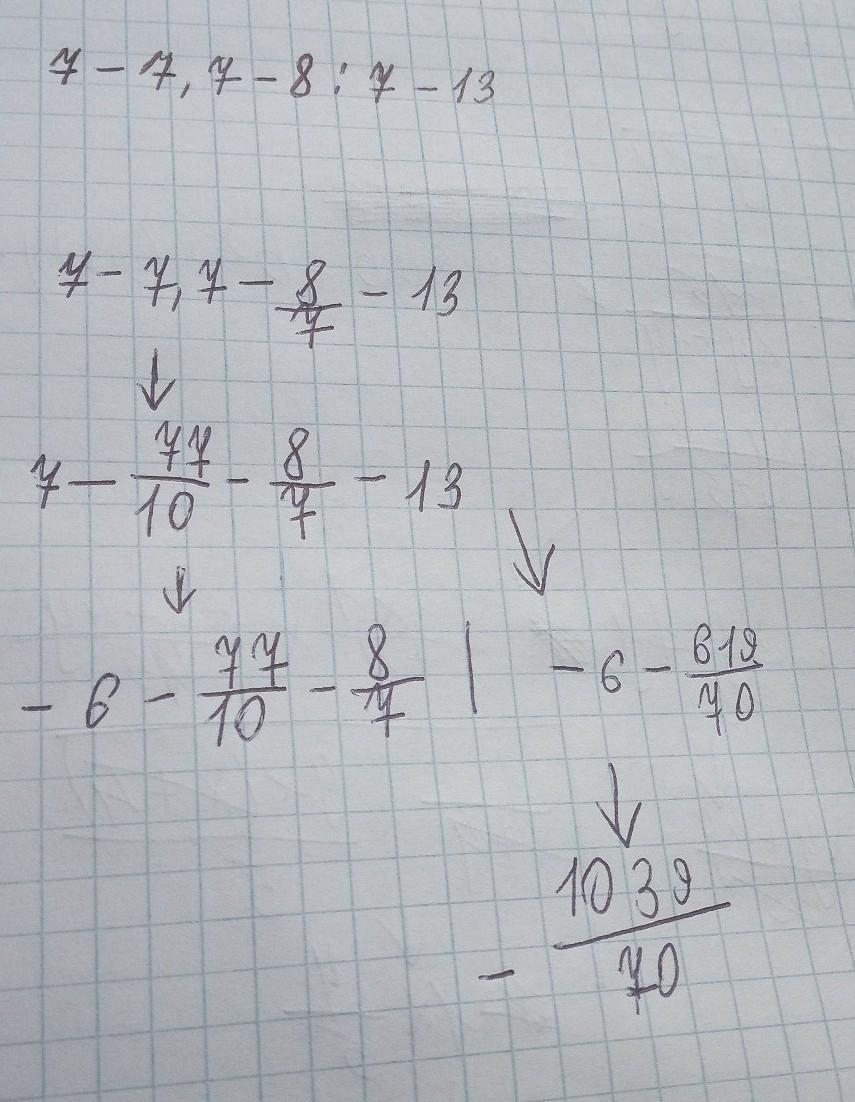 7 - 7,7 - 8 : 7 - 13
7 - 7,7 - 8/7 - 13
↓
7 - 77/10 - 8/7 - 13
↓ ↘
- 6 - 77/10 - 8/7 | - 6 - 619/70
↓
- 1039/70